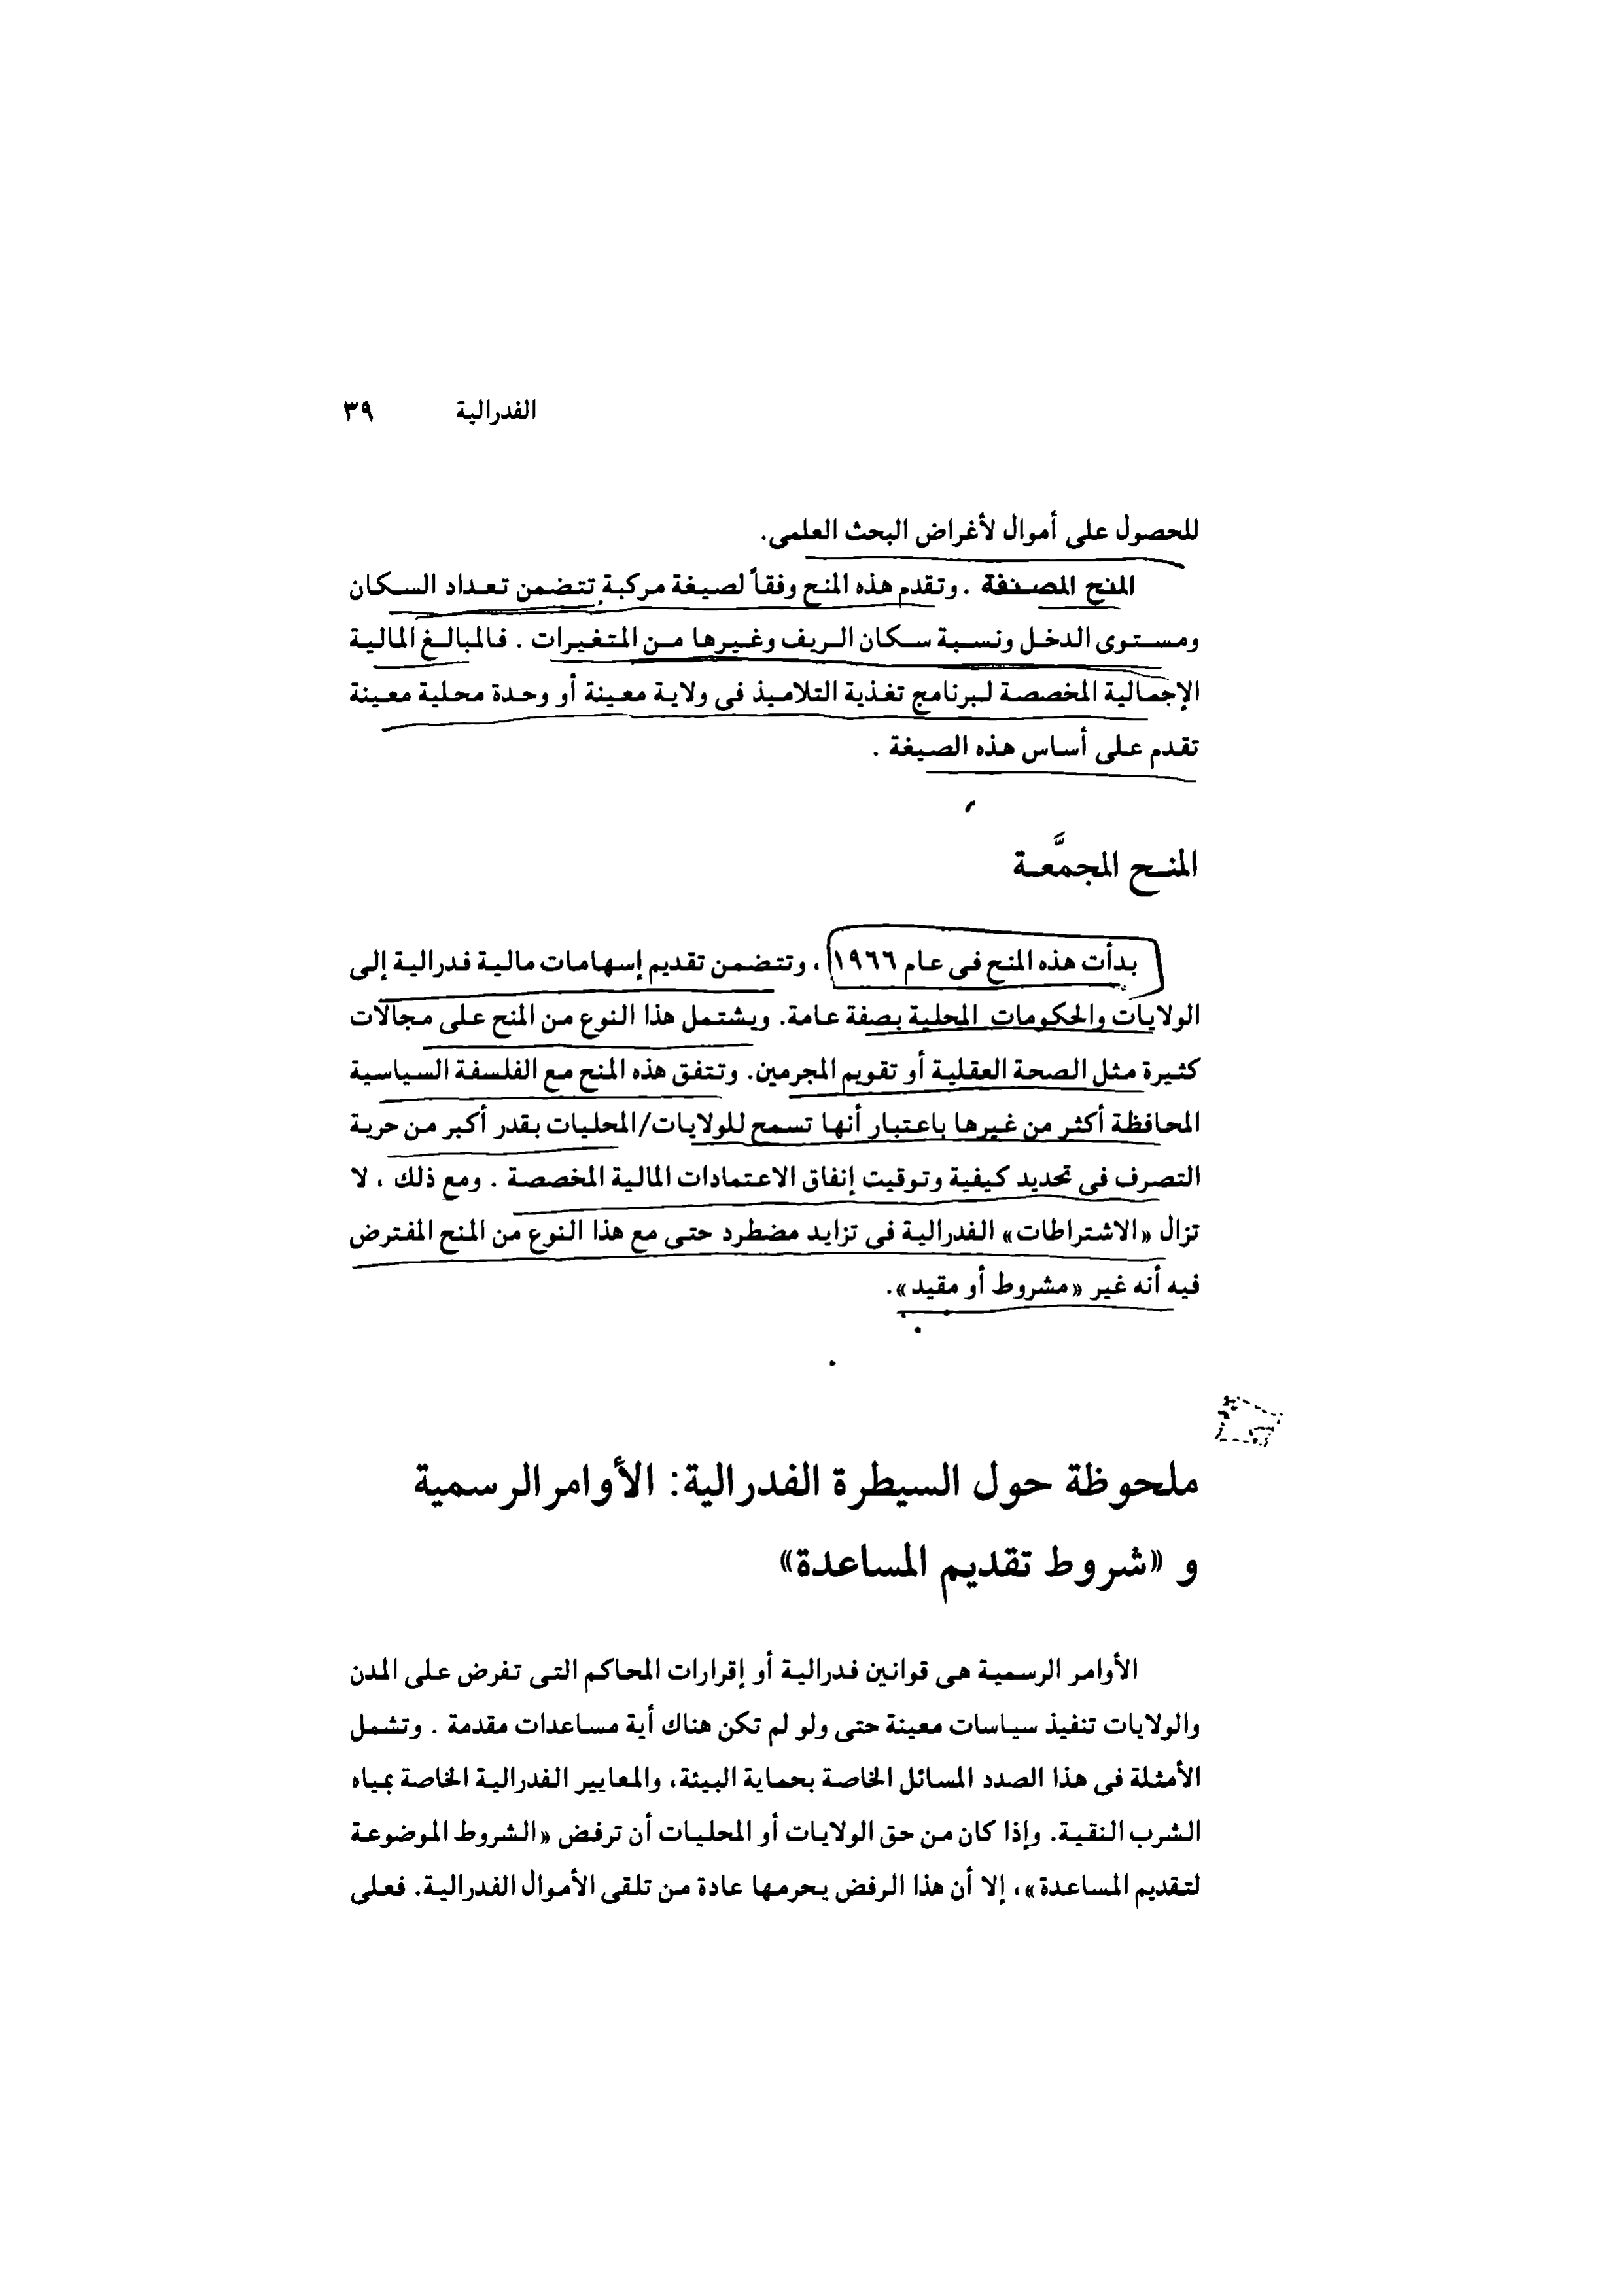 الفدرالية ٣٩
للحصول على أموال لأغراض البحث العلمى.
المنح المصنفة . وتقدم هذه المنح وفقاً لصيغة مركبة تتضمن تعداد السكان
ومستوى الدخل ونسبة سكان الريف وغيرها من المتغيرات . فالمبالغ المالية
الإجمالية المخصصة لبرنامج تغذية التلاميذ فى ولاية معينة أو وحدة محلية معينة
تقدم على أساس هذه الصيغة .
المنح المجمَّعة
بدأت هذه المنح فى عام ١٩٦٦ ، وتتضمن تقديم إسهامات مالية فدرالية إلى
الولايات والحكومات المحلية بصفة عامة. ويشتمل هذا النوع من المنح على مجالات
كثيرة مثل الصحة العقلية أو تقويم المجرمين. وتتفق هذه المنح مع الفلسفة السياسية
المحافظة أكثر من غيرها باعتبار أنها تسمح للولايات/المحليات بقدر أكبر من حرية
التصرف فى تحديد كيفية وتوقيت إنفاق الاعتمادات المالية المخصصة . ومع ذلك ، لا
تزال «الاشتراطات» الفدرالية فى تزايد مضطرد حتى مع هذا النوع من المنح المفترض
فيه أنه غير «مشروط أو مقيد».
ملحوظة حول السيطرة الفدرالية: الأوامر الرسمية
و «شروط تقديم المساعدة»
الأوامر الرسمية هى قوانين فدرالية أو إقرارات المحاكم التى تفرض على المدن
والولايات تنفيذ سياسات معينة حتى ولو لم تكن هناك أية مساعدات مقدمة . وتشمل
الأمثلة فى هذا الصدد المسائل الخاصة بحماية البيئة، والمعايير الفدرالية الخاصة بمياه
الشرب النقية. وإذا كان من حق الولايات أو المحليات أن ترفض «الشروط الموضوعة
لتقديم المساعدة»، إلا أن هذا الرفض يحرمها عادة من تلقى الأموال الفدرالية. فعلى